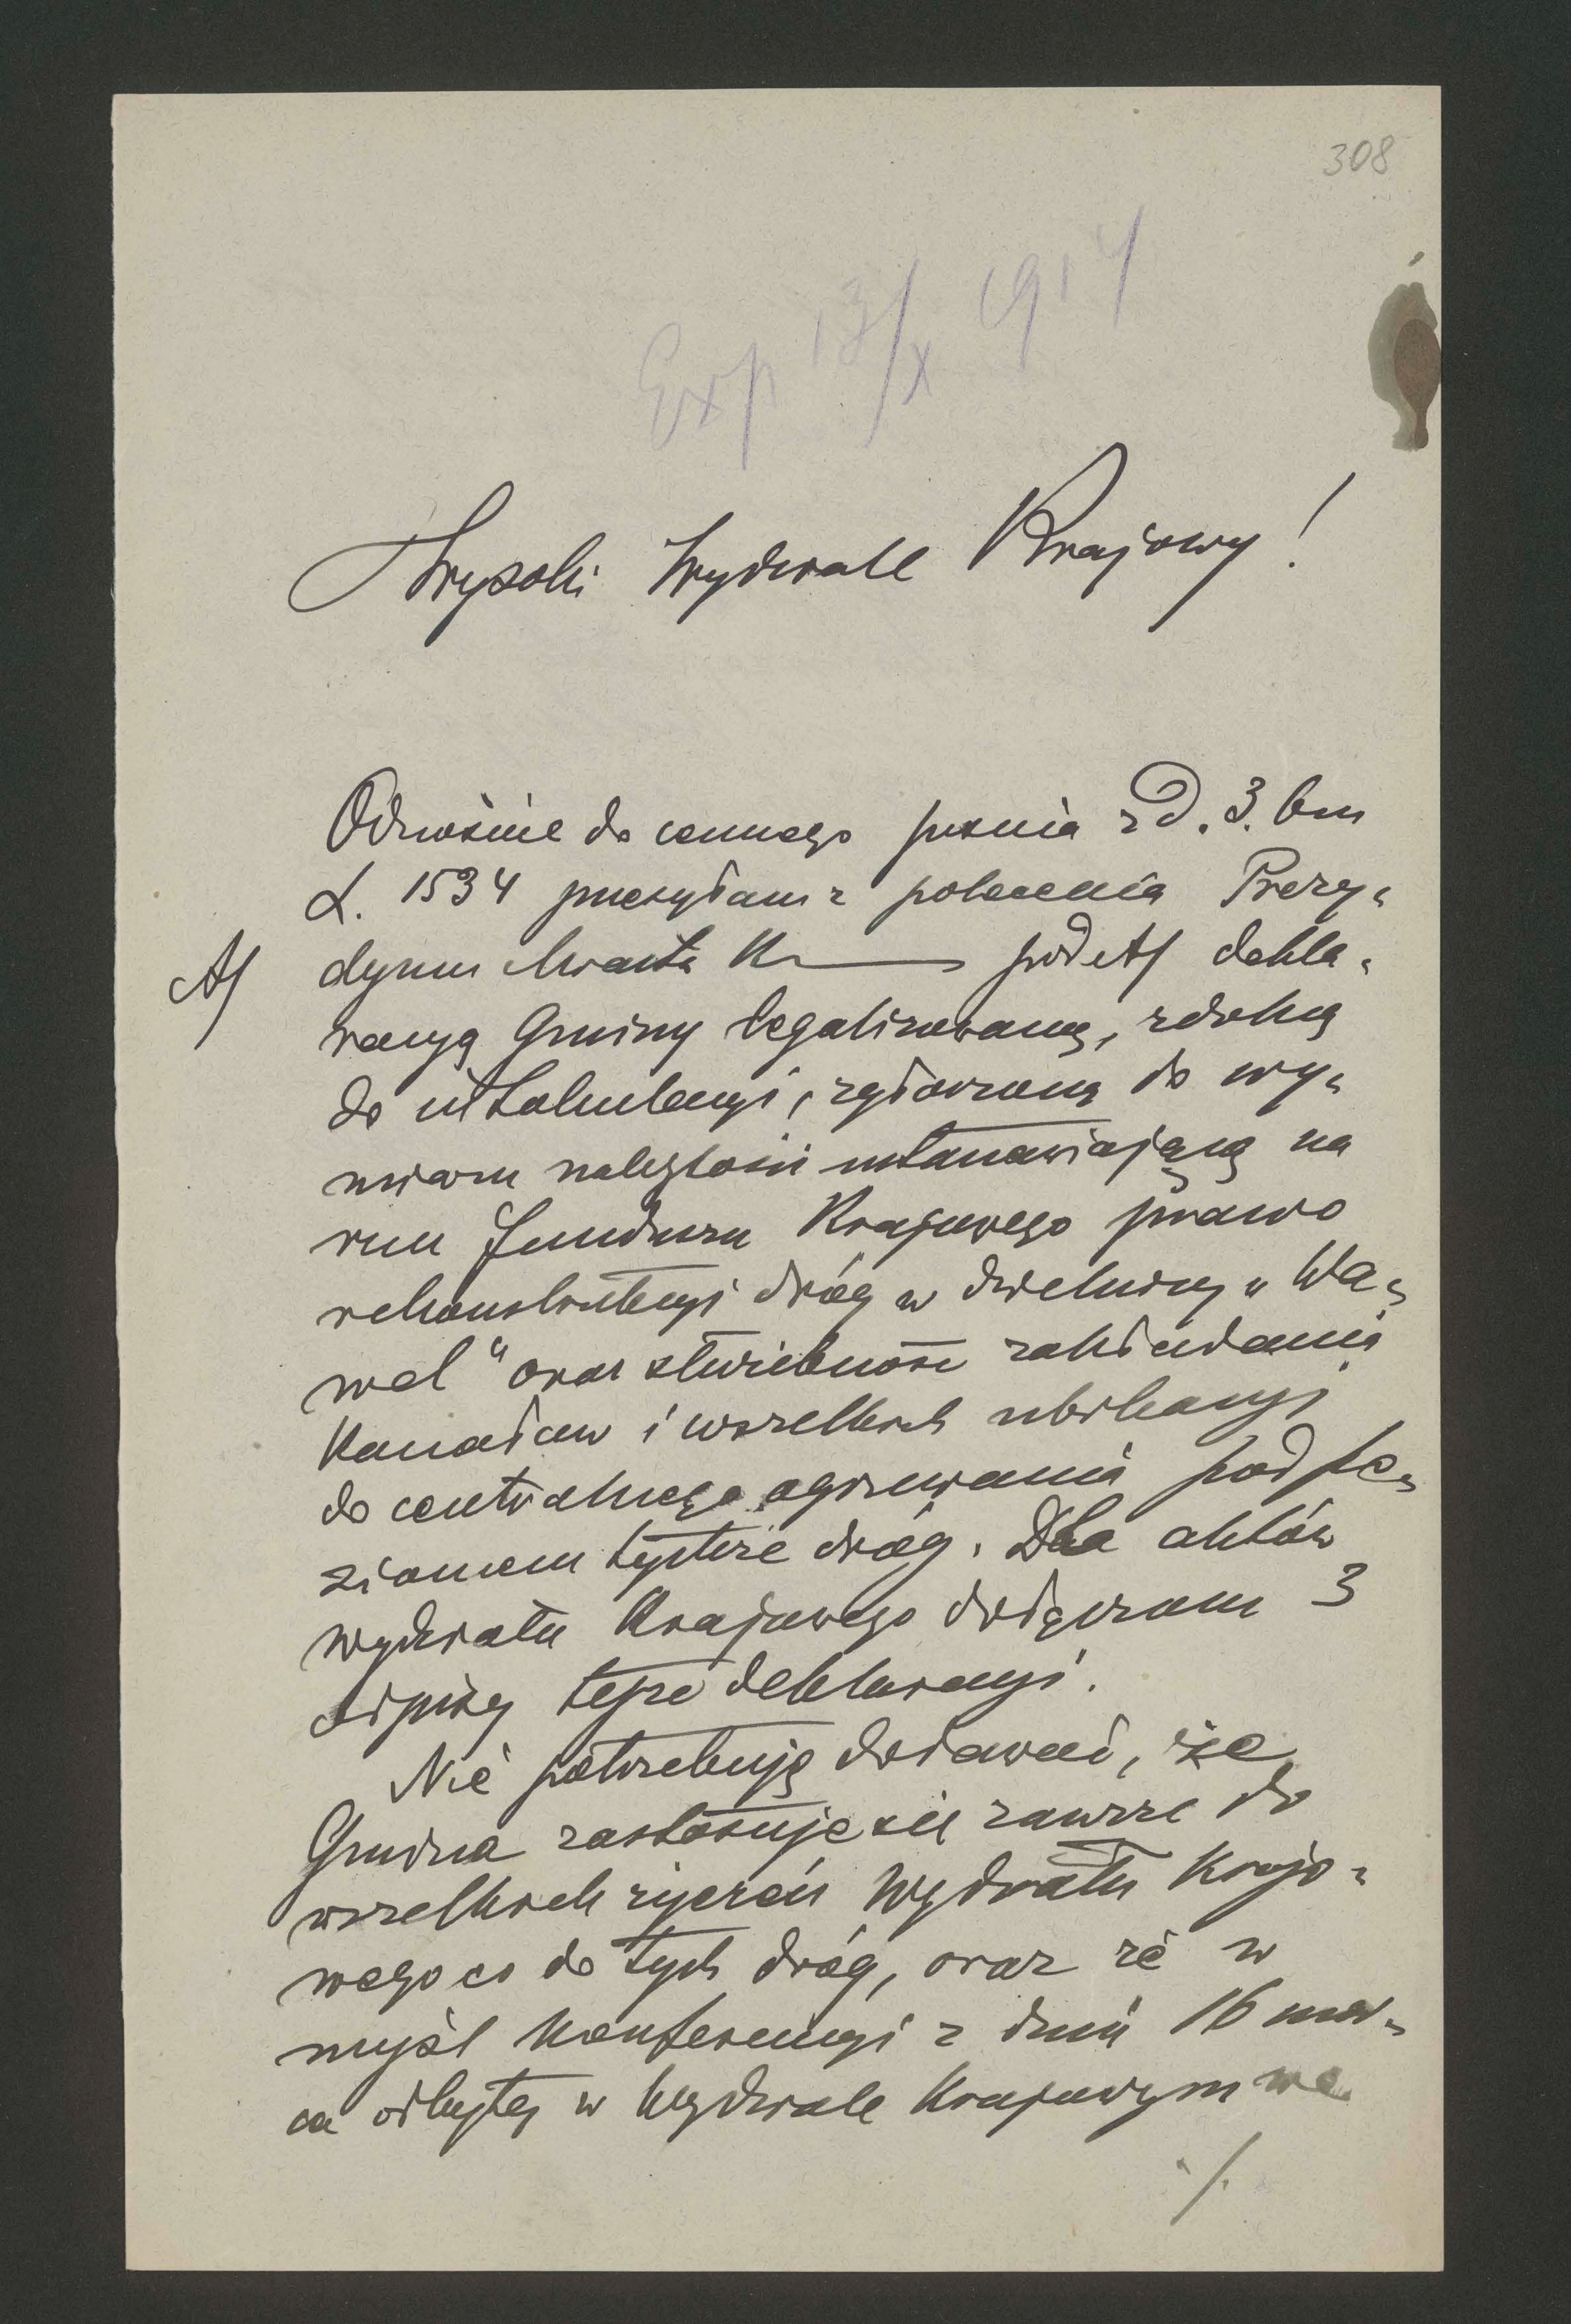 308
Exp 13/X 1914
Wysoki Wydziale Krajowy!
Odnośnie do cennego pisma z d. 3. bm
L. 1534 przesyłam z polecenia Prezy-
A/ dyum Miasta K pod A/ dekla-
racyą Gminy legalizowaną, zdolną
do intabulacyi, zgłoszoną do wy-
miaru należytości ustanawiającą na
rzecz funduszu Krajowego prawo
rekonstrukcyi dróg w dzielnicy „Wa-
wel" oraz służebność zakładania
Kanałów i wszelkich ubikacyj
do centralnego ogrzewania pod po-
ziomem tychże dróg. Dla aktów
Wydziału Krajowego dołączam 3
odpisy tejże deklaracyi.
Nie potrzebuję dodawać, że
Gmina zastosuje się zawsze do
wszelkich życzeń Wydziału Krajo-
wego co do tych dróg, oraz że w
myśl Konferencyi z dnia 16 mar-
ca odbytej w Wydziale Krajowym we
./.